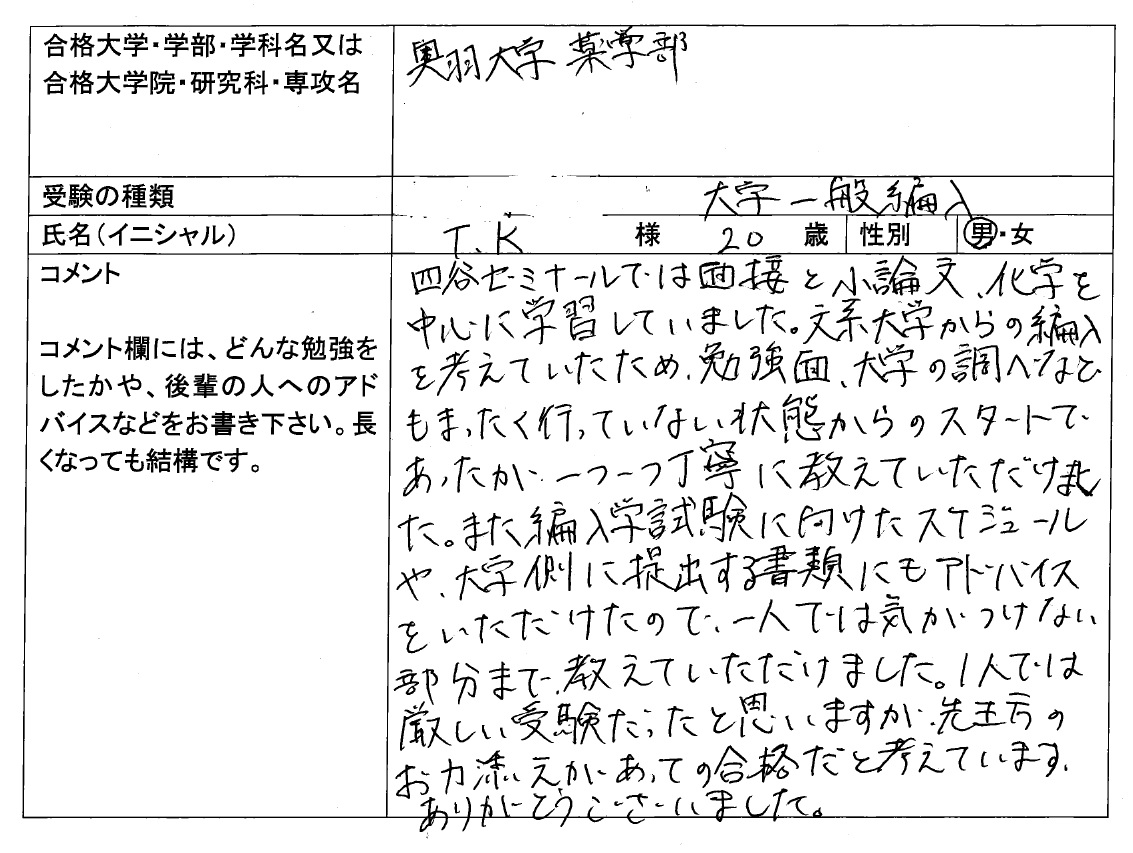 合格大学・学部・学科名又は
合格大学院・研究科・専攻名
奥羽大学 薬学部
受験の種類
大学一般編入
氏名(イニシャル)
T.K 様 20 歳 性別 男・女
コメント
コメント欄には、どんな勉強を
したかや、後輩の人へのアド
バイスなどをお書き下さい。長
くなっても結構です。
四谷ゼミナールでは面接と小論文、化学を
中心に学習していました。文系大学からの編入
を考えていたため、勉強面、大学の調べなど
もまったく行っていない状態からのスタートで
あったが、一つ一つ丁寧に教えていただけまし
た。また編入学試験に向けたスケジュール
や、大学側に提出する書類にもアドバイス
をいただけたので、一人では気がつけない
部分まで、教えていただけました。1人では
厳しい受験だったと思いますが、先生方の
お力添えがあっての合格だと考えています。
ありがとうございました。